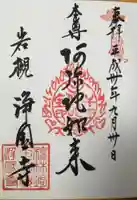 奉拝 平成卅年 月卅日
本尊
阿弥陀如来
岩槻 浄国寺